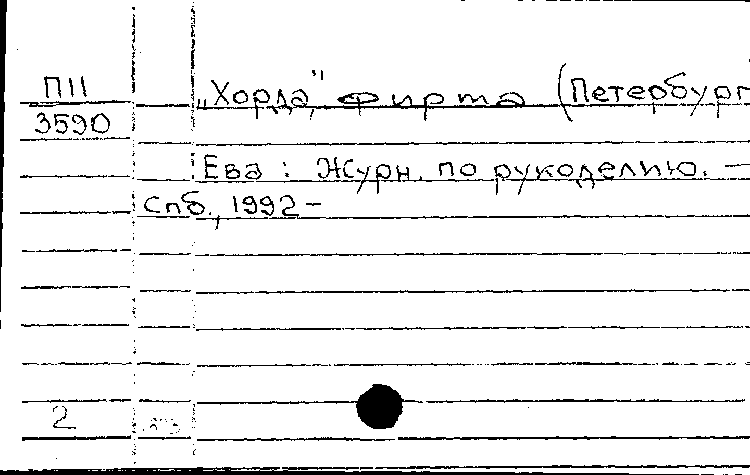 П11 „Хорда," фирма (Петербург
3590
Ева : Журн. по рукоделию. —
Спб., 1992-
2